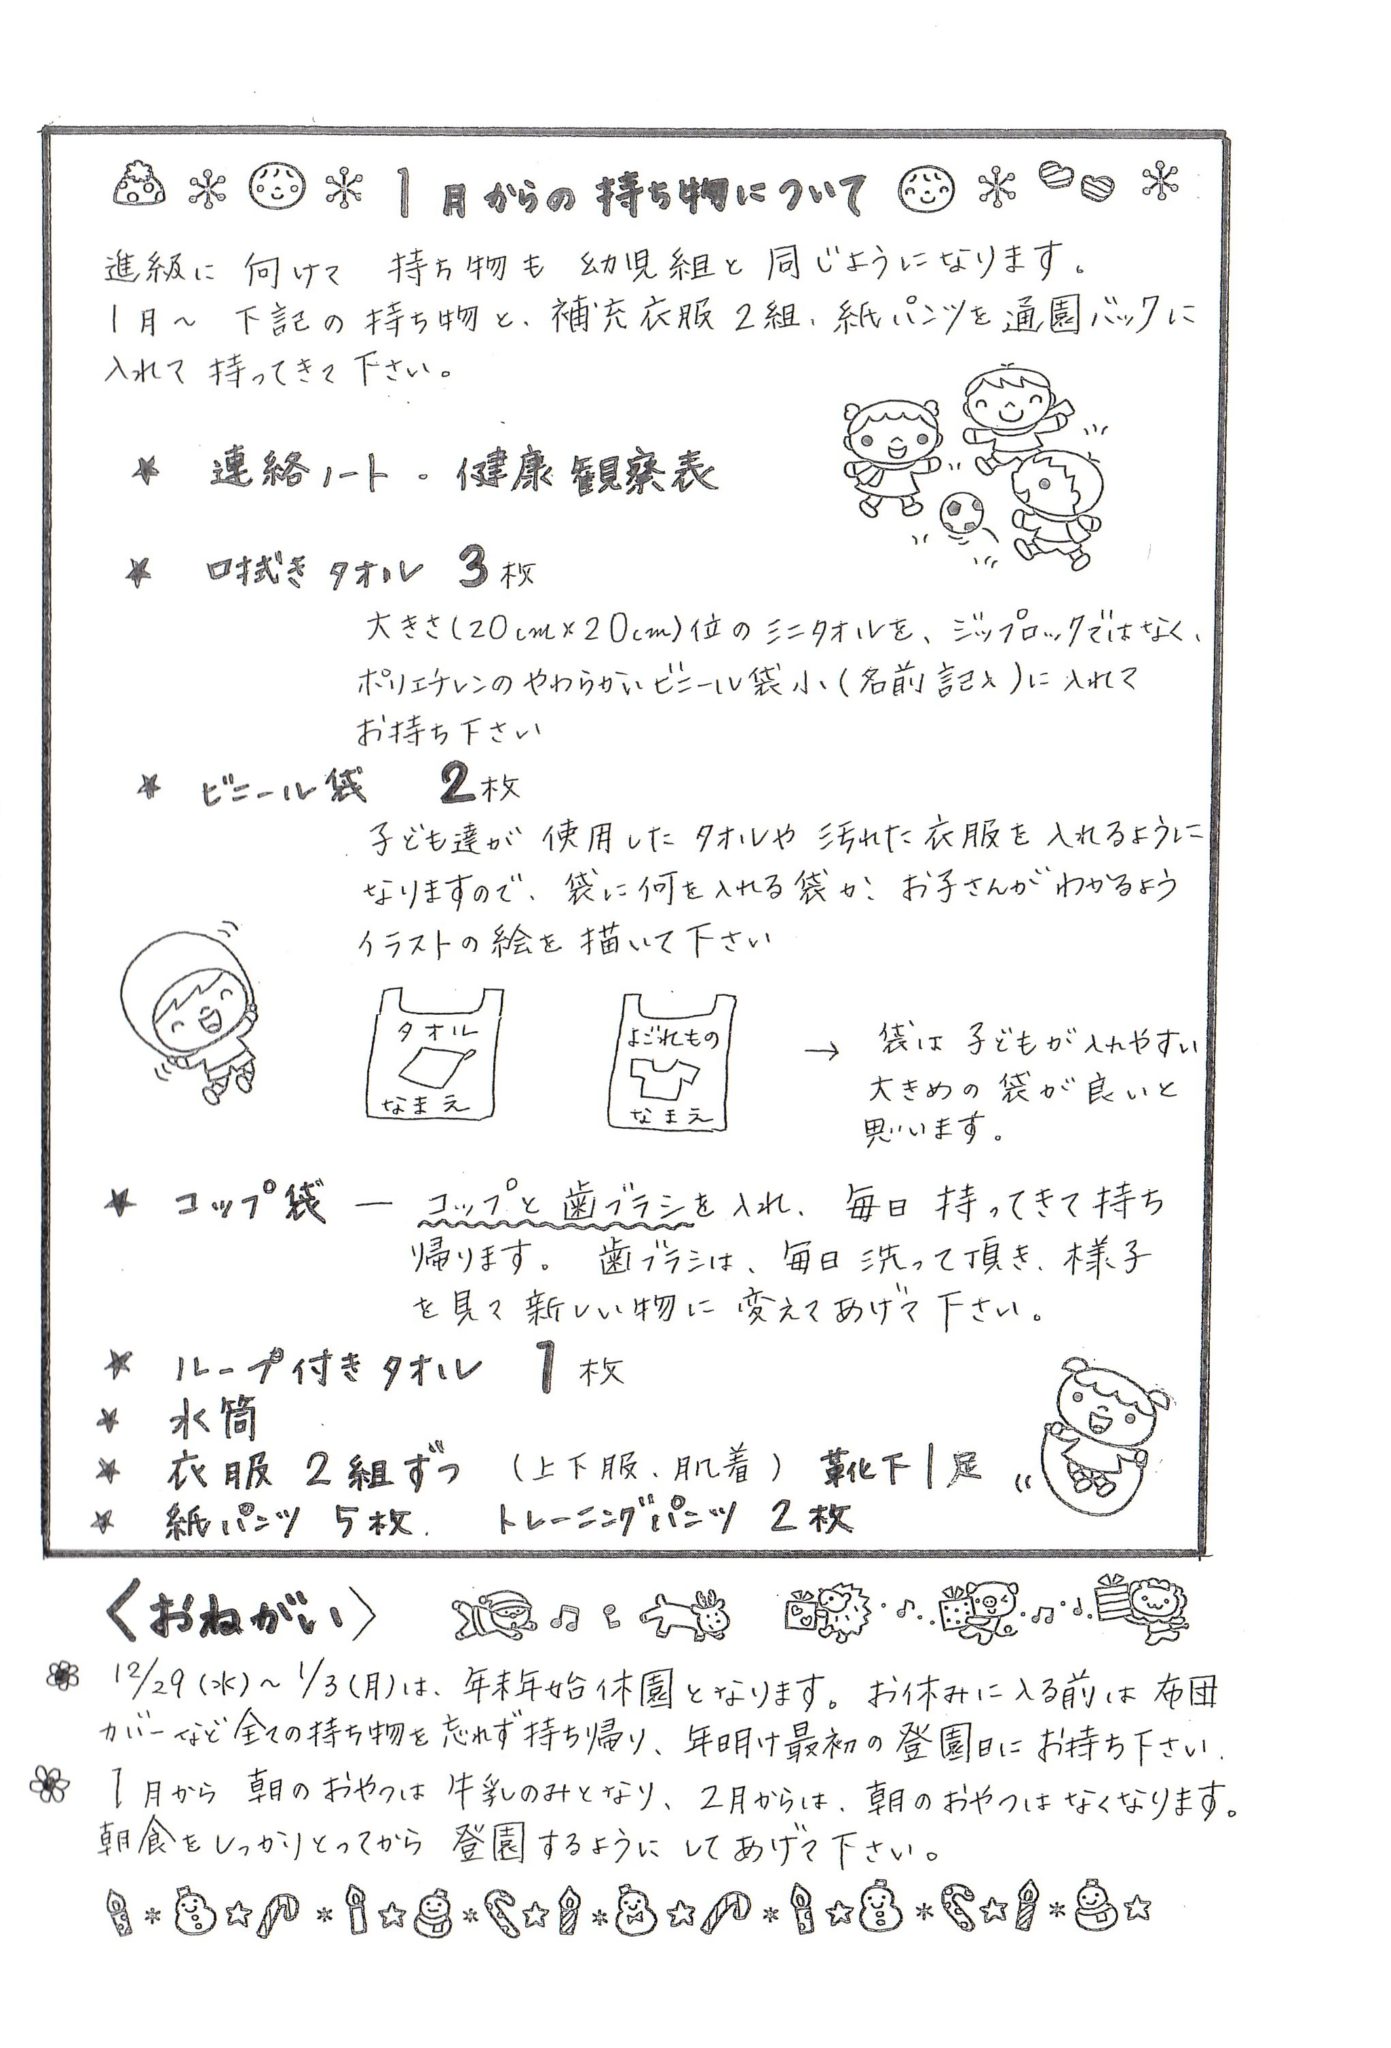 1月からの持ち物について
進級に向けて 持ち物も 幼児組と同じようになります。
1月～ 下記の持ち物と、補充衣服2組、紙パンツを通園バックに
入れて持ってきて下さい。
★ 連絡ノート・健康観察表
★ 口拭きタオル 3枚
大きさ(20cm×20cm)位のミニタオルを、ジップロックではなく、
ポリエチレンのやわらかいビニール袋小(名前記入)に入れて
お持ち下さい
★ ビニール袋 2枚
子ども達が使用したタオルや汚れた衣服を入れるように
なりますので、袋に何を入れる袋か、お子さんがわかるよう
イラストの絵を描いて下さい
タオル
なまえ
よごれもの
なまえ
→ 袋は子どもが入れやすい
大きめの袋が良いと
思います。
★ コップ袋 ― コップと歯ブラシを入れ、毎日持ってきて持ち
帰ります。歯ブラシは、毎日洗って頂き、様子
を見て新しい物に変えてあげて下さい。
★ ループ付きタオル 1枚
★ 水筒
★ 衣服 2組ずつ (上下服、肌着) 靴下1足
★ 紙パンツ 5枚. トレーニングパンツ 2枚
〈おねがい〉
12/29(水)～1/3(月)は、年末年始休園となります。お休みに入る前は布団
カバーなど全ての持ち物を忘れず持ち帰り、年明け最初の登園日にお持ち下さい.
1月から朝のおやつは牛乳のみとなり、2月からは、朝のおやつはなくなります。
朝食をしっかりとってから登園するようにしてあげて下さい。